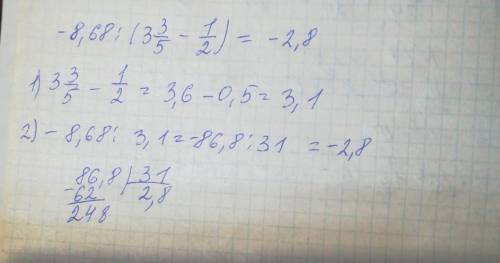 -8,68 : (3 3/5 - 1/2) = -2,8
1) 3 3/5 - 1/2 = 3,6 - 0,5 = 3,1
2) - 8,68 : 3,1 = -86,8 : 31 = -2,8
86,8 | 31
-62 | 2,8
248